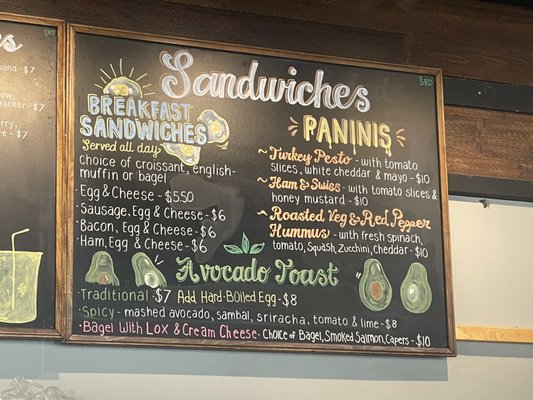 Sandwiches
SRD
BREAKFAST
SANDWICHES
Served all day
Choice of croissant, english-
muffin or bagel
· Egg & Cheese - $5.50
· Sausage, Egg & Cheese - $6
· Bacon, Egg & Cheese - $6
· Ham, Egg & Cheese - $6
PANINIS
~ Turkey Pesto - with tomato
slices, white cheddar & mayo - $10
~ Ham & Swiss - with tomato slices &
honey mustard - $10
~ Roasted Veg & Red Pepper
Hummus - with fresh spinach,
tomato, Squash, Zucchini, Cheddar - $10
Avocado Toast
Traditional - $7 Add Hard-Boiled Egg - $8
· Spicy - mashed avocado, sambal, sriracha, tomato & lime - $8
· Bagel With Lox & Cream Cheese - Choice of Bagel, Smoked Salmon, Capers - $10
SRD
- $7
- $7
- $7